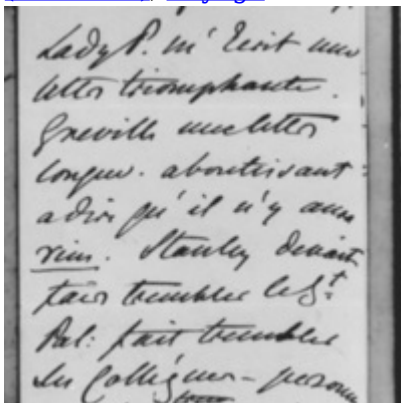 Lady P. m'écrit une
lettre triomphante.
Greville une lettre
longue. aboutissant
a dire qu'il n'y aura
rien. Stanley devant
faire trembler le Gt
Pal: fait trembler
ses Collègues - personne